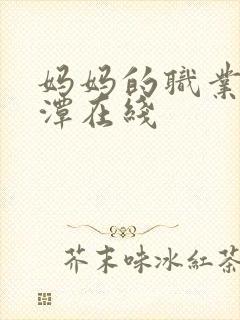 妈妈的職業
潭在綫
芥末味冰紅茶